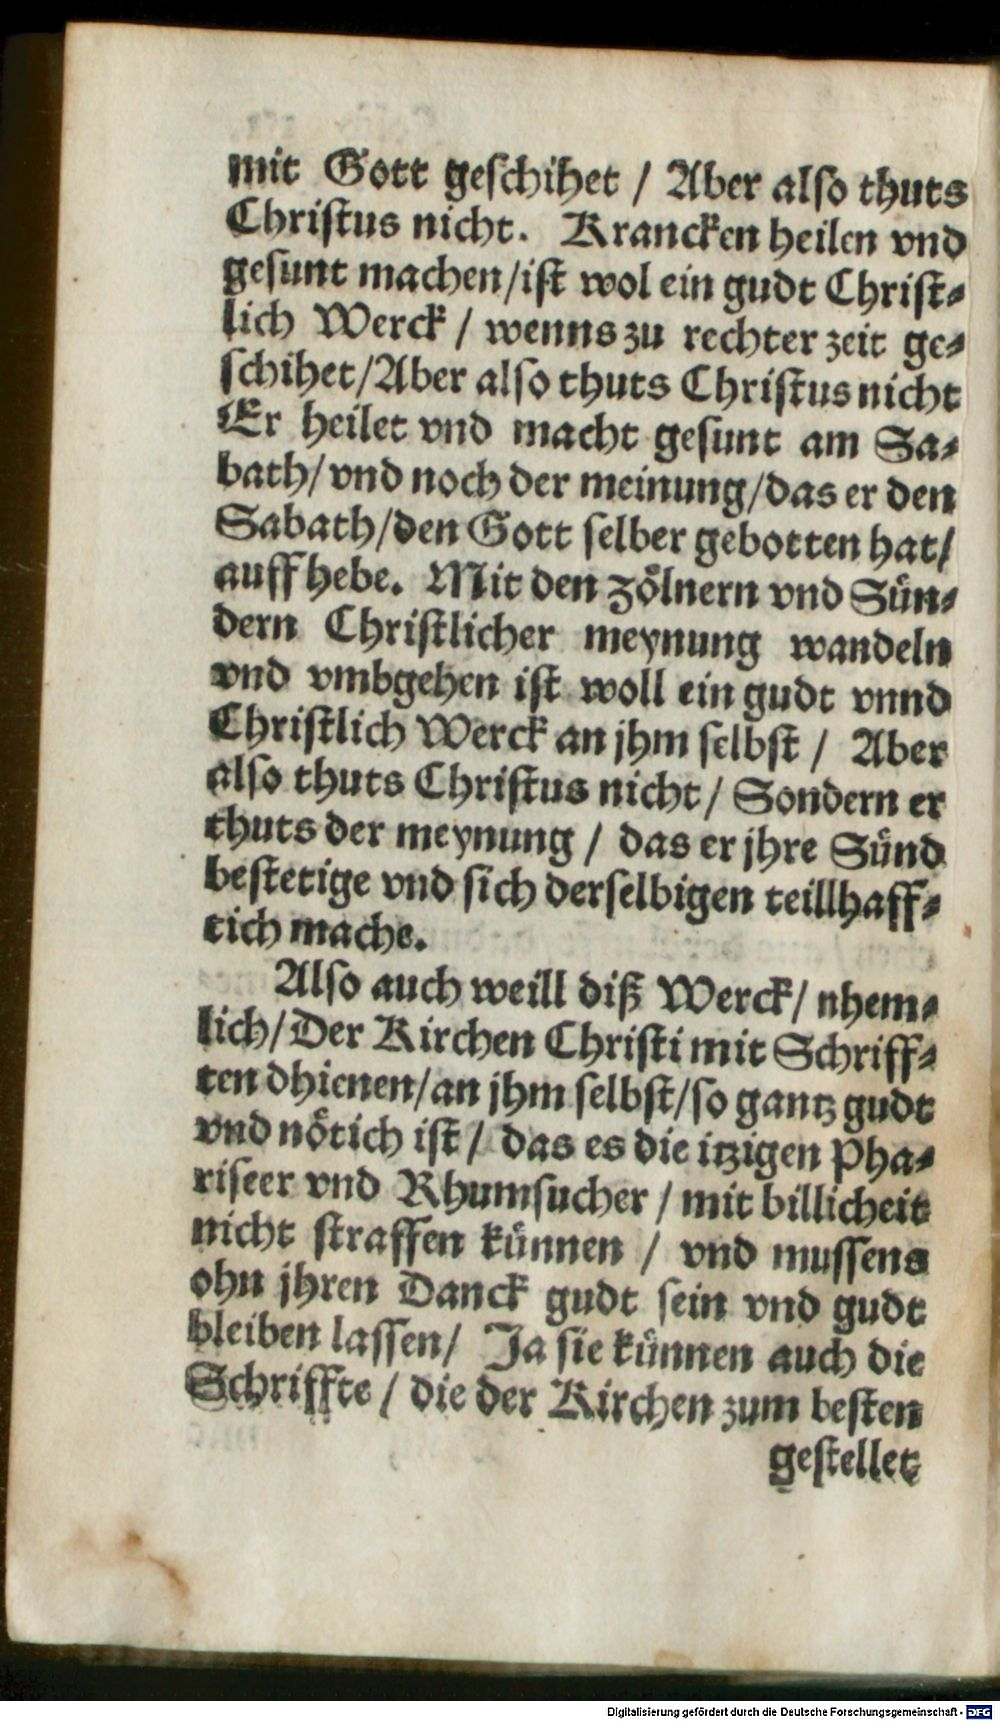 mit Gott geschihet / Aber also thuts
Christus nicht. Krancken heilen vnd
gesunt machen/ist wol ein gudt Christ-
lich Werck / wenns zu rechter zeit ge-
schihet/Aber also thuts Christus nicht
Er heilet vnd macht gesunt am Sa-
bath/vnd noch der meinung/das er den
Sabath/den Gott selber gebotten hat/
auff hebe. Mit den zölnern vnd Sün-
dern Christlicher meynung wandeln
vnd vmbgehen ist woll ein gudt vnnd
Christlich Werck an jhm selbst / Aber
also thuts Christus nicht/ Sondern er
thuts der meynung / das er jhre Sünd
bestetige vnd sich derselbigen teillhaff-
tich mache.
Also auch weill diß Werck/ nhem-
lich/Der Kirchen Christi mit Schriff-
ten dhienen/an jhm selbst/so gantz gudt
vnd nötich ist / das es die itzigen Pha-
riseer vnd Rhumsucher / mit billicheit
nicht straffen künnen / vnd mussens
ohn jhren Danck gudt sein vnd gudt
bleiben lassen/ Ja sie künnen auch die
Schriffte / die der Kirchen zum besten
gestellet
Digitalisierung gefördert durch die Deutsche Forschungsgemeinschaft - DFG